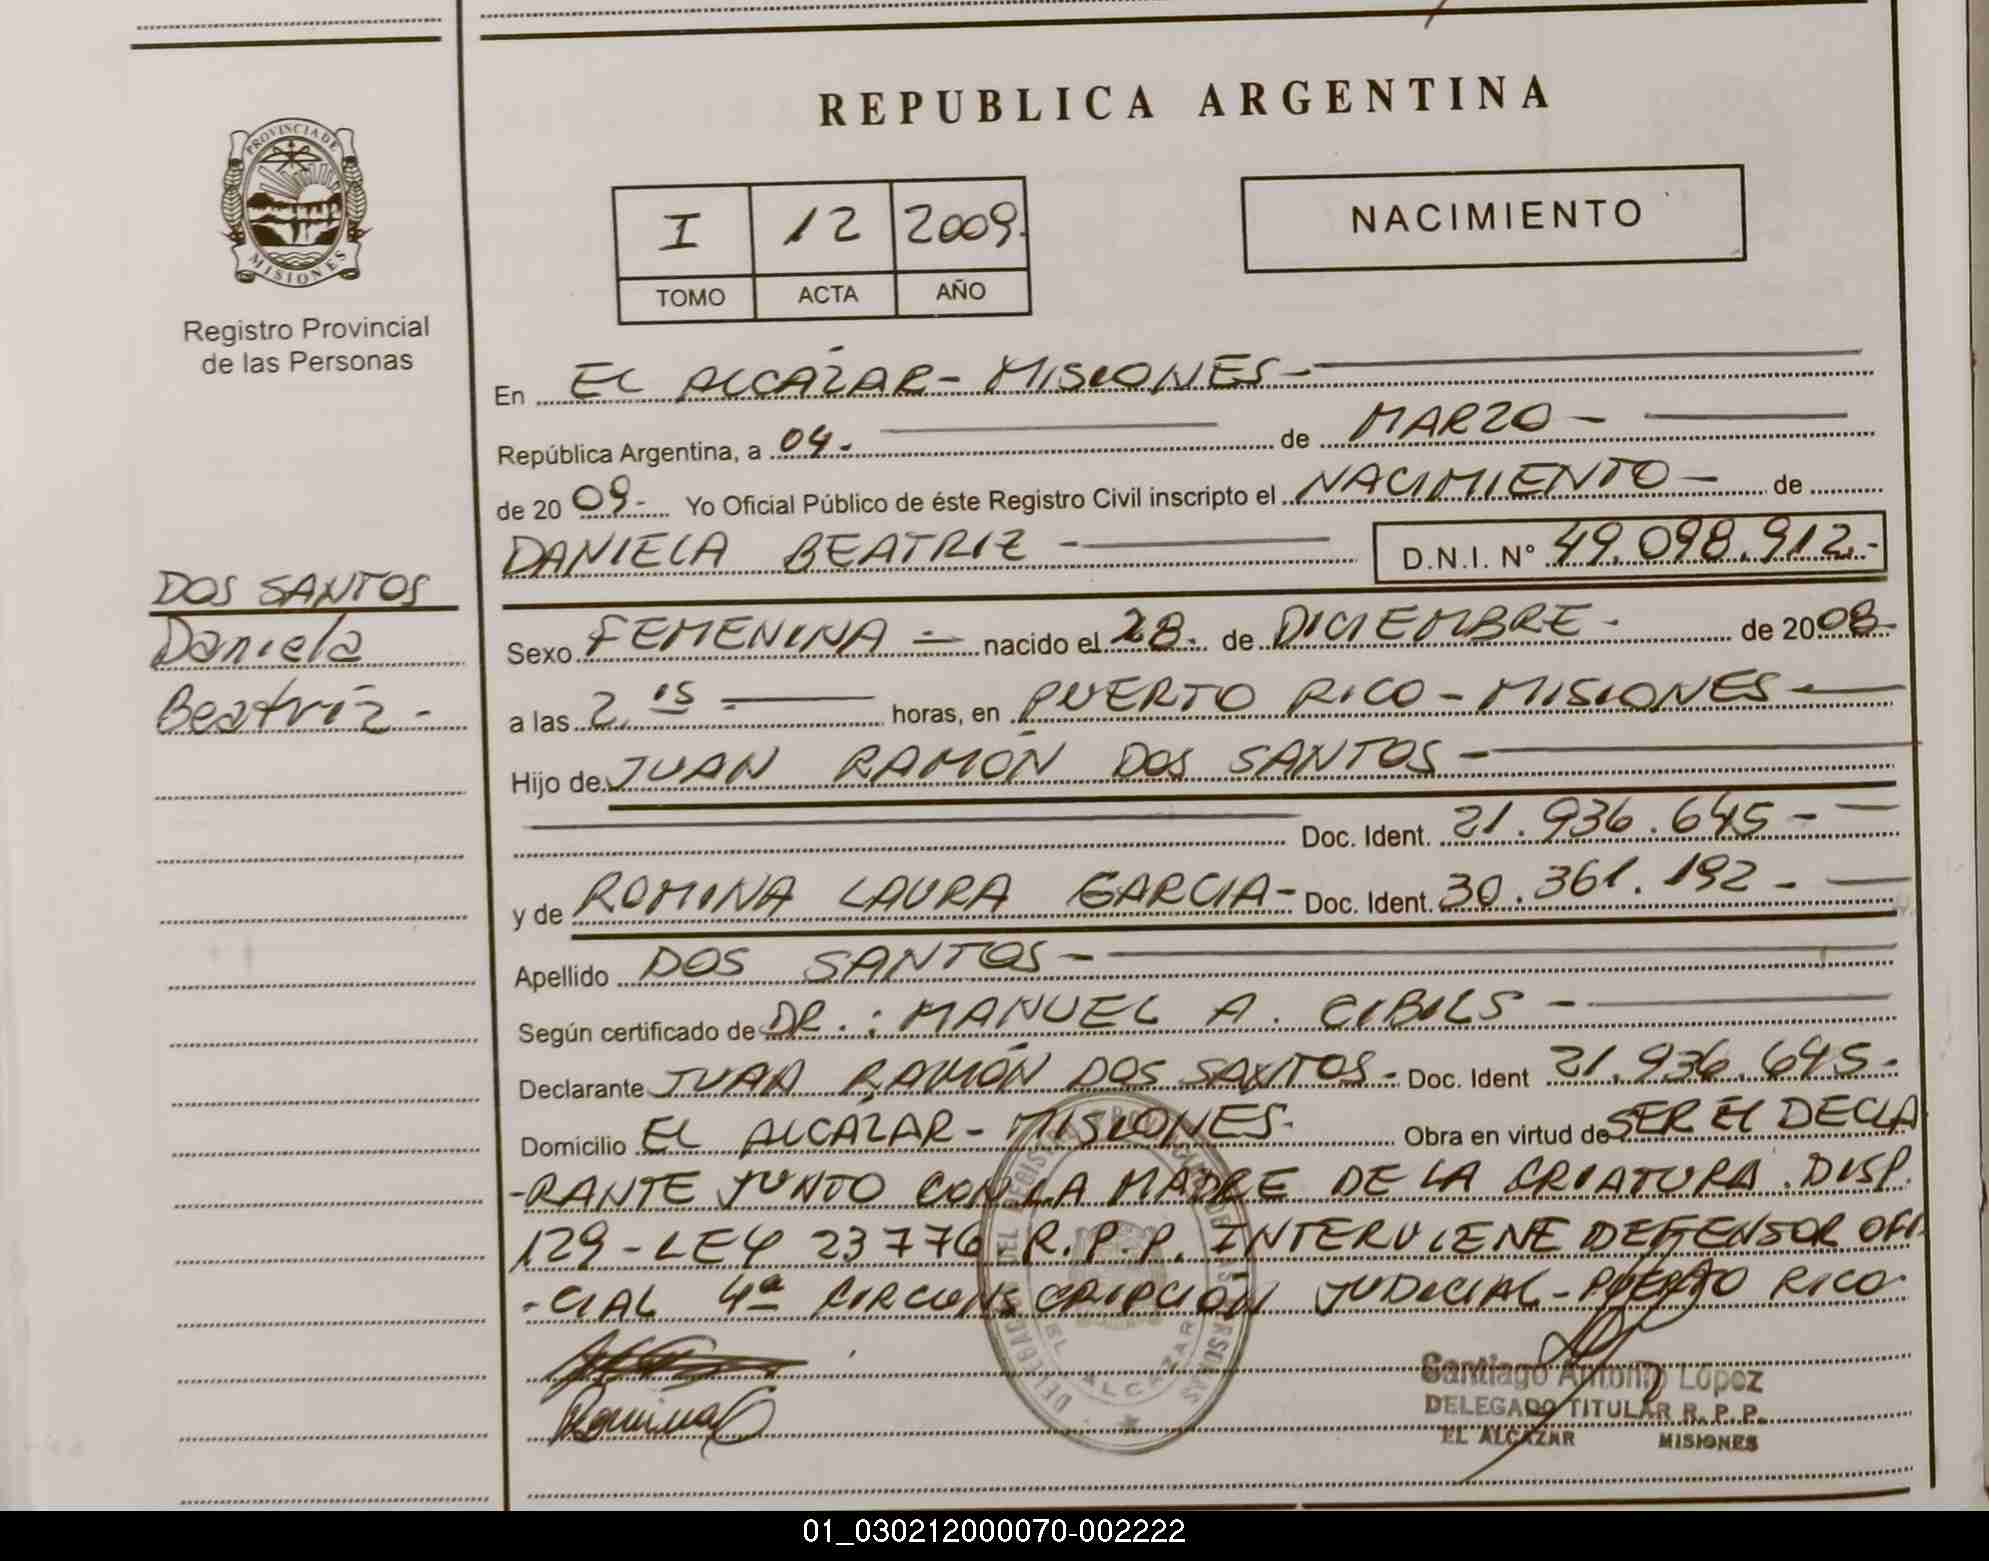 REPUBLICA ARGENTINA
PROVINCIA DE
MISIONES
Registro Provincial
de las Personas
I 12 2009.
TOMO ACTA AÑO
NACIMIENTO
En EL ALCÁZAR - MISIONES -
República Argentina, a 04. de MARZO -
de 20 09.- Yo Oficial Público de éste Registro Civil inscripto el NACIMIENTO - de
DANIELA BEATRIZ - D.N.I. N° 49.098.912.-
DOS SANTOS
Daniela
Beatriz -
Sexo FEMENINA - nacido el 28. de DICIEMBRE - de 20 08-
a las 2. 15 - horas, en PUERTO RICO - MISIONES -
Hijo de JUAN RAMÓN DOS SANTOS -
Doc. Ident. 21.936.645 -
y de ROMINA LAURA GARCIA - Doc. Ident. 30.361.192 -
Apellido DOS SANTOS -
Según certificado de DR.: MANUEL A. CIBILS -
Declarante JUAN RAMÓN DOS SANTOS - Doc. Ident 21.936.645 -
Domicilio EL ALCÁZAR - MISIONES. Obra en virtud de SER EL DECLA
-RANTE JUNTO CON LA MADRE DE LA CRIATURA. DISP.
129 - LEY 23776. R.P.P. INTERVIENE DEFENSOR OFI
-CIAL 4ª CIRCUNSCRIPCIÓN JUDICIAL - PUERTO RICO
Santiago Antonio López
DELEGADO TITULAR R. P. P.
EL ALCAZAR MISIONES
01_030212000070-002222